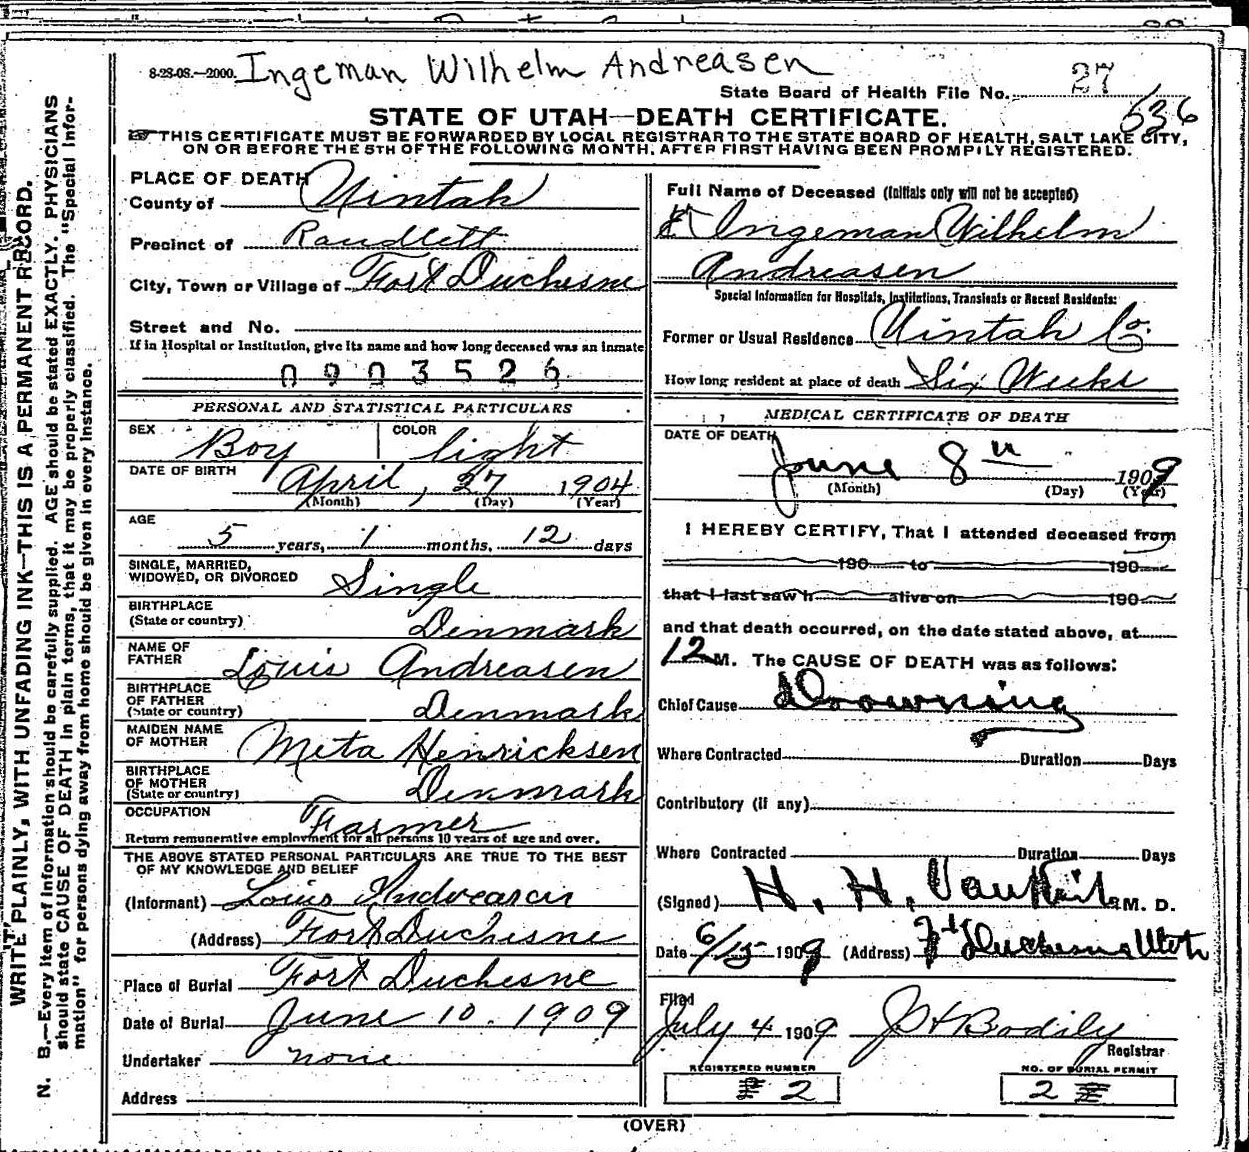 8-28-08.—2000. Ingeman Wilhelm Andreasen
State Board of Health File No. 27
636
STATE OF UTAH—DEATH CERTIFICATE.
THIS CERTIFICATE MUST BE FORWARDED BY LOCAL REGISTRAR TO THE STATE BOARD OF HEALTH, SALT LAKE CITY,
ON OR BEFORE THE 5TH OF THE FOLLOWING MONTH, AFTER FIRST HAVING BEEN PROMPILY REGISTERED.
WRITE PLAINLY, WITH UNFADING INK—THIS IS A PERMANENT RECORD.
N. B.—Every item of information should be carefully supplied. AGE should be stated EXACTLY. PHYSICIANS
should state CAUSE OF DEATH in plain terms, that it may be properly classified. The "Special Infor-
mation" for persons dying away from home should be given in every instance.
PLACE OF DEATH
County of Uintah
Precinct of Randlett
City, Town or Village of Fort Duchesne
Street and No.
If in Hospital or Institution, give its name and how long deceased was an inmate
0903526
PERSONAL AND STATISTICAL PARTICULARS
SEX Boy COLOR light
DATE OF BIRTH April, 27 1904
(Month) (Day) (Year)
AGE
5 years, 1 months, 12 days
SINGLE, MARRIED,
WIDOWED, OR DIVORCED Single
BIRTHPLACE
(State or country) Denmark
NAME OF
FATHER Louis Andreasen
BIRTHPLACE
OF FATHER
(State or country) Denmark
MAIDEN NAME
OF MOTHER Meta Henricksen
BIRTHPLACE
OF MOTHER
(State or country) Denmark
OCCUPATION Farmer
Return remunerative employment for all persons 10 years of age and over.
THE ABOVE STATED PERSONAL PARTICULARS ARE TRUE TO THE BEST
OF MY KNOWLEDGE AND BELIEF
(Informant) Louis Andreasen
(Address) Fort Duchesne
Place of Burial Fort Duchesne
Date of Burial June 10. 1909
Undertaker none
Address
Full Name of Deceased (Initials only will not be accepted)
Ingeman Wilhelm
Andreasen
Special Information for Hospitals, Institutions, Transients or Recent Residents:
Former or Usual Residence Uintah Co.
How long resident at place of death Six Weeks
MEDICAL CERTIFICATE OF DEATH
DATE OF DEATH
June 8th 1909
(Month) (Day) (Year)
I HEREBY CERTIFY, That I attended deceased from
190 to 190
that I last saw h alive on 190
and that death occurred, on the date stated above, at
12 M. The CAUSE OF DEATH was as follows:
Chief Cause Drowning
Where Contracted Duration Days
Contributory (if any)
Where Contracted Duration Days
(Signed) H. H. M. D.
Date 6/15 1909 (Address) Ft Duchesne Utah
Filed
July 4 1909 J H Bodily
Registrar
REGISTERED NUMBER
2
NO. OF BURIAL PERMIT
2
(OVER)